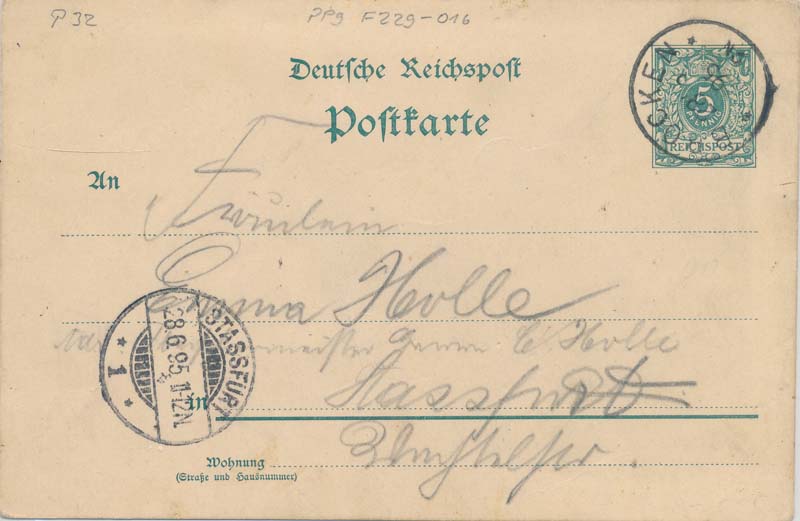 P 32
PPg F229-016
Deutsche Reichspost
Postkarte
CKEN
5
PFENNIG
REICHSPOST
An
Fräulein
Emma Holle
C. Holle
Stassfurt
in
STASSFURT
28.6.95. 11-12N.
* 1 *
Wohnung
(Straße und Hausnummer)